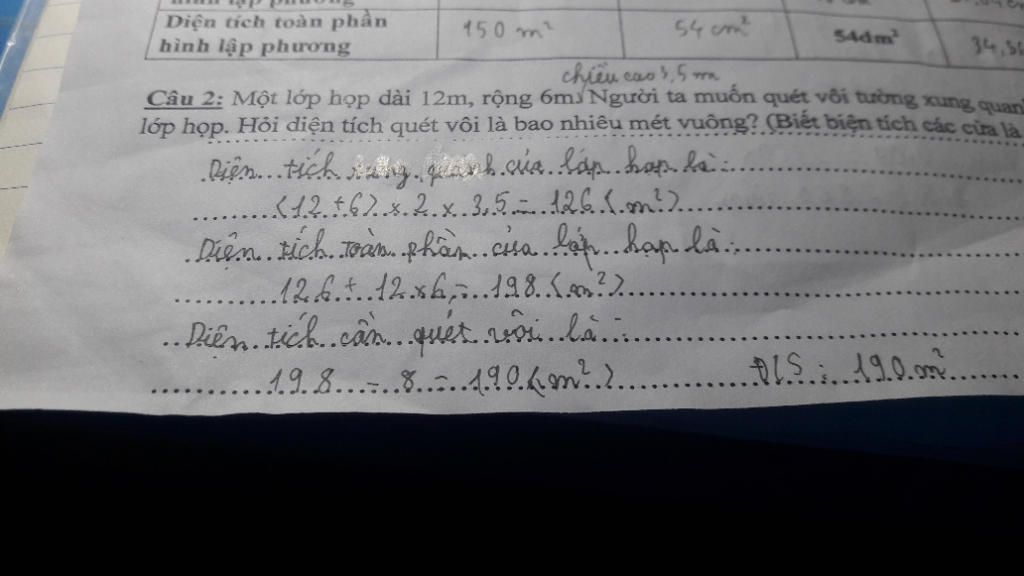 Diện tích toàn phần
hình lập phương
150 m²
54 cm²
54dm²
chiều cao 3,5 m
Câu 2: Một lớp họp dài 12m, rộng 6m, Người ta muốn quét vôi tường xung quanh
lớp họp. Hỏi diện tích quét vôi là bao nhiêu mét vuông? (Biết biện tích các cửa là
Diện tích xung quanh của lớp họp là:
(12 + 6) x 2 x 3,5 = 126 (m²)
Diện tích toàn phần của lớp họp là:
126 + 12 x 6 = 198 (m²)
Diện tích cần quét vôi là:
198 - 8 = 190 (m²) Đ/S: 190 m²